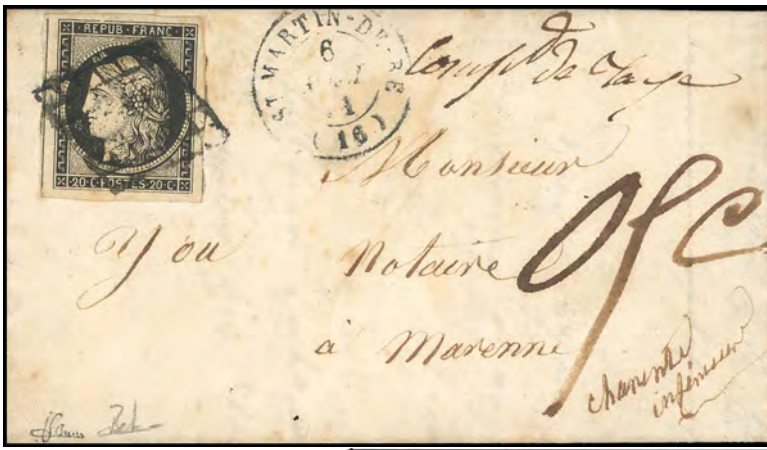 REPUB·FRANC·
20·C·POSTES·20·C·
ST MARTIN-DE-RE
6
(16)
Compt de Taxe
Monsieur
You
Notaire
05 C
à Marenne
charente
inférieure